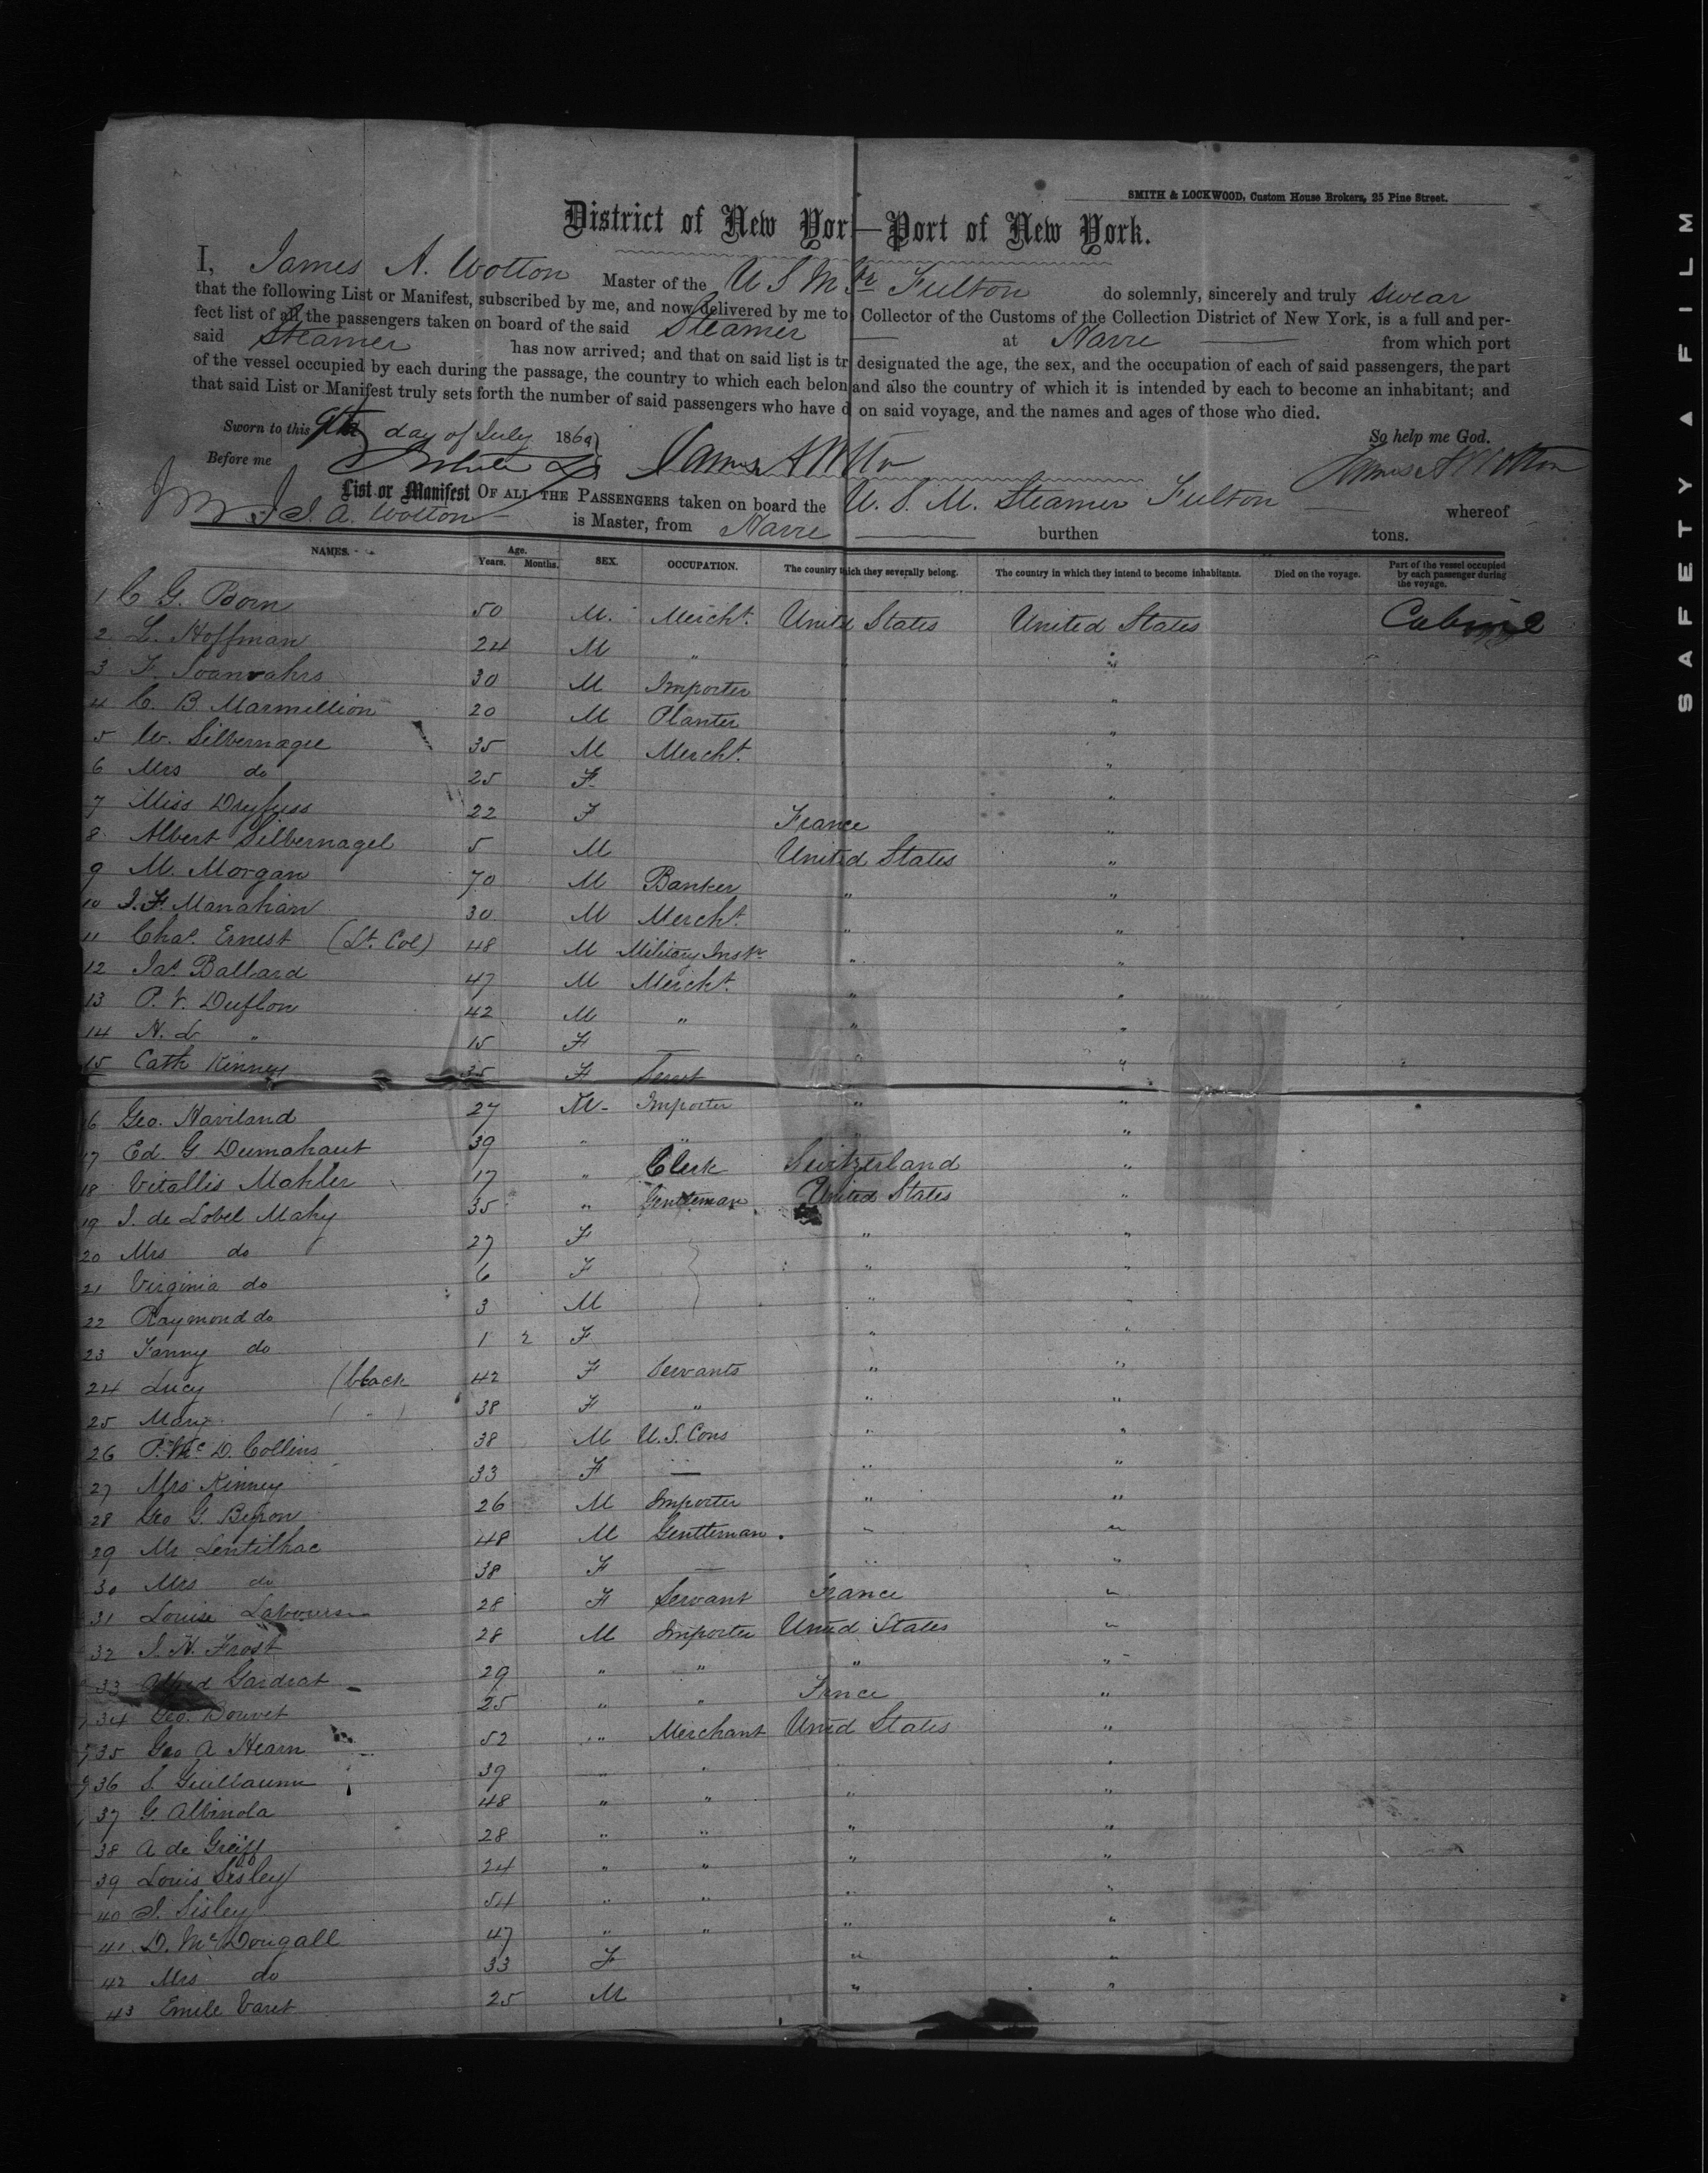 SMITH & LOCKWOOD, Custom House Brokers, 25 Pine Street.
District of New Yor—Port of New York.
I, James A. Wotton Master of the U S M Str Fulton do solemnly, sincerely and truly swear
that the following List or Manifest, subscribed by me, and now delivered by me to Collector of the Customs of the Collection District of New York, is a full and per-
fect list of all the passengers taken on board of the said Steamer at Havre from which port
said Steamer has now arrived; and that on said list is tr designated the age, the sex, and the occupation of each of said passengers, the part
of the vessel occupied by each during the passage, the country to which each belon and also the country of which it is intended by each to become an inhabitant; and
that said List or Manifest truly sets forth the number of said passengers who have d on said voyage, and the names and ages of those who died.
Sworn to this 9th day of July 1860 So help me God.
Before me James A Wotton James A Wotton
List or Manifest OF ALL THE PASSENGERS taken on board the U. S. M. Steamer Fulton whereof
J. A. Wotton is Master, from Havre burthen tons.
NAMES. Age. Years. Months. SEX. OCCUPATION. The country which they severally belong. The country in which they intend to become inhabitants. Died on the voyage. Part of the vessel occupied by each passenger during the voyage.
1 C G. Born 50 M. Mercht. United States United States Cabine
2 L. Hoffman 24 M " "
3 F. 30 M Importer "
4 C. B. Marmillion 20 M Planter "
5 W. Silbernagel 35 M Mercht. "
6 Mrs do 25 F "
7 Miss Dryfuss 22 F France "
8 Albert Silbernagel 5 M United States "
9 M. Morgan 70 M Banker " "
10 J. F. Manahan 30 M Mercht. " "
11 Chas. Ernest (Lt. Col) 48 M Military Instr " "
12 Jas. Ballard 47 M Mercht. " "
13 P. V. Duflon 42 M " " "
14 N. L " 15 F — " "
15 Cath Kinney 35 F Servt "
16 Geo. Haviland 27 M- Importer " "
17 Ed. G Dumahaut 39 " " "
18 Vitallis Mahler 17 " Clerk Switzerland "
19 J. de Lobel Mahy 35 " Gentleman United States "
20 Mrs do 27 F " "
21 Virginia do 6 F " "
22 Raymond do 3 M " "
23 Fanny do 1 2 F " "
24 Lucy (black 42 F Servants " "
25 Mary ( " ) 38 F " " "
26 P. Mc D. Collins 38 M U.S. Cons " "
27 Mrs Kinney 33 F — " "
28 Geo G. Byron 26 M Importer " "
29 Mr Lentilhac 48 M Gentleman. " "
30 Mrs do 38 F — " "
31 Louise 28 F Servant France "
32 S. H. Frost 28 M Importer United States "
33 Alfred Gardrat 29 " " " "
34 Geo. Bouvet 25 " " France "
35 Geo A Hearn 52 " Merchant United States "
36 S. Guillaume 39 " " "
37 G. Albinola 48 " " " "
38 A de Greiff 28 " " " "
39 Louis Sisley 24 " " " "
40 S. Sisley 54 " " " "
41 D. McDougall 47 " " " "
42 Mrs do 33 F " "
43 Emile Varet 25 M " "
SAFETY ▲ FILM